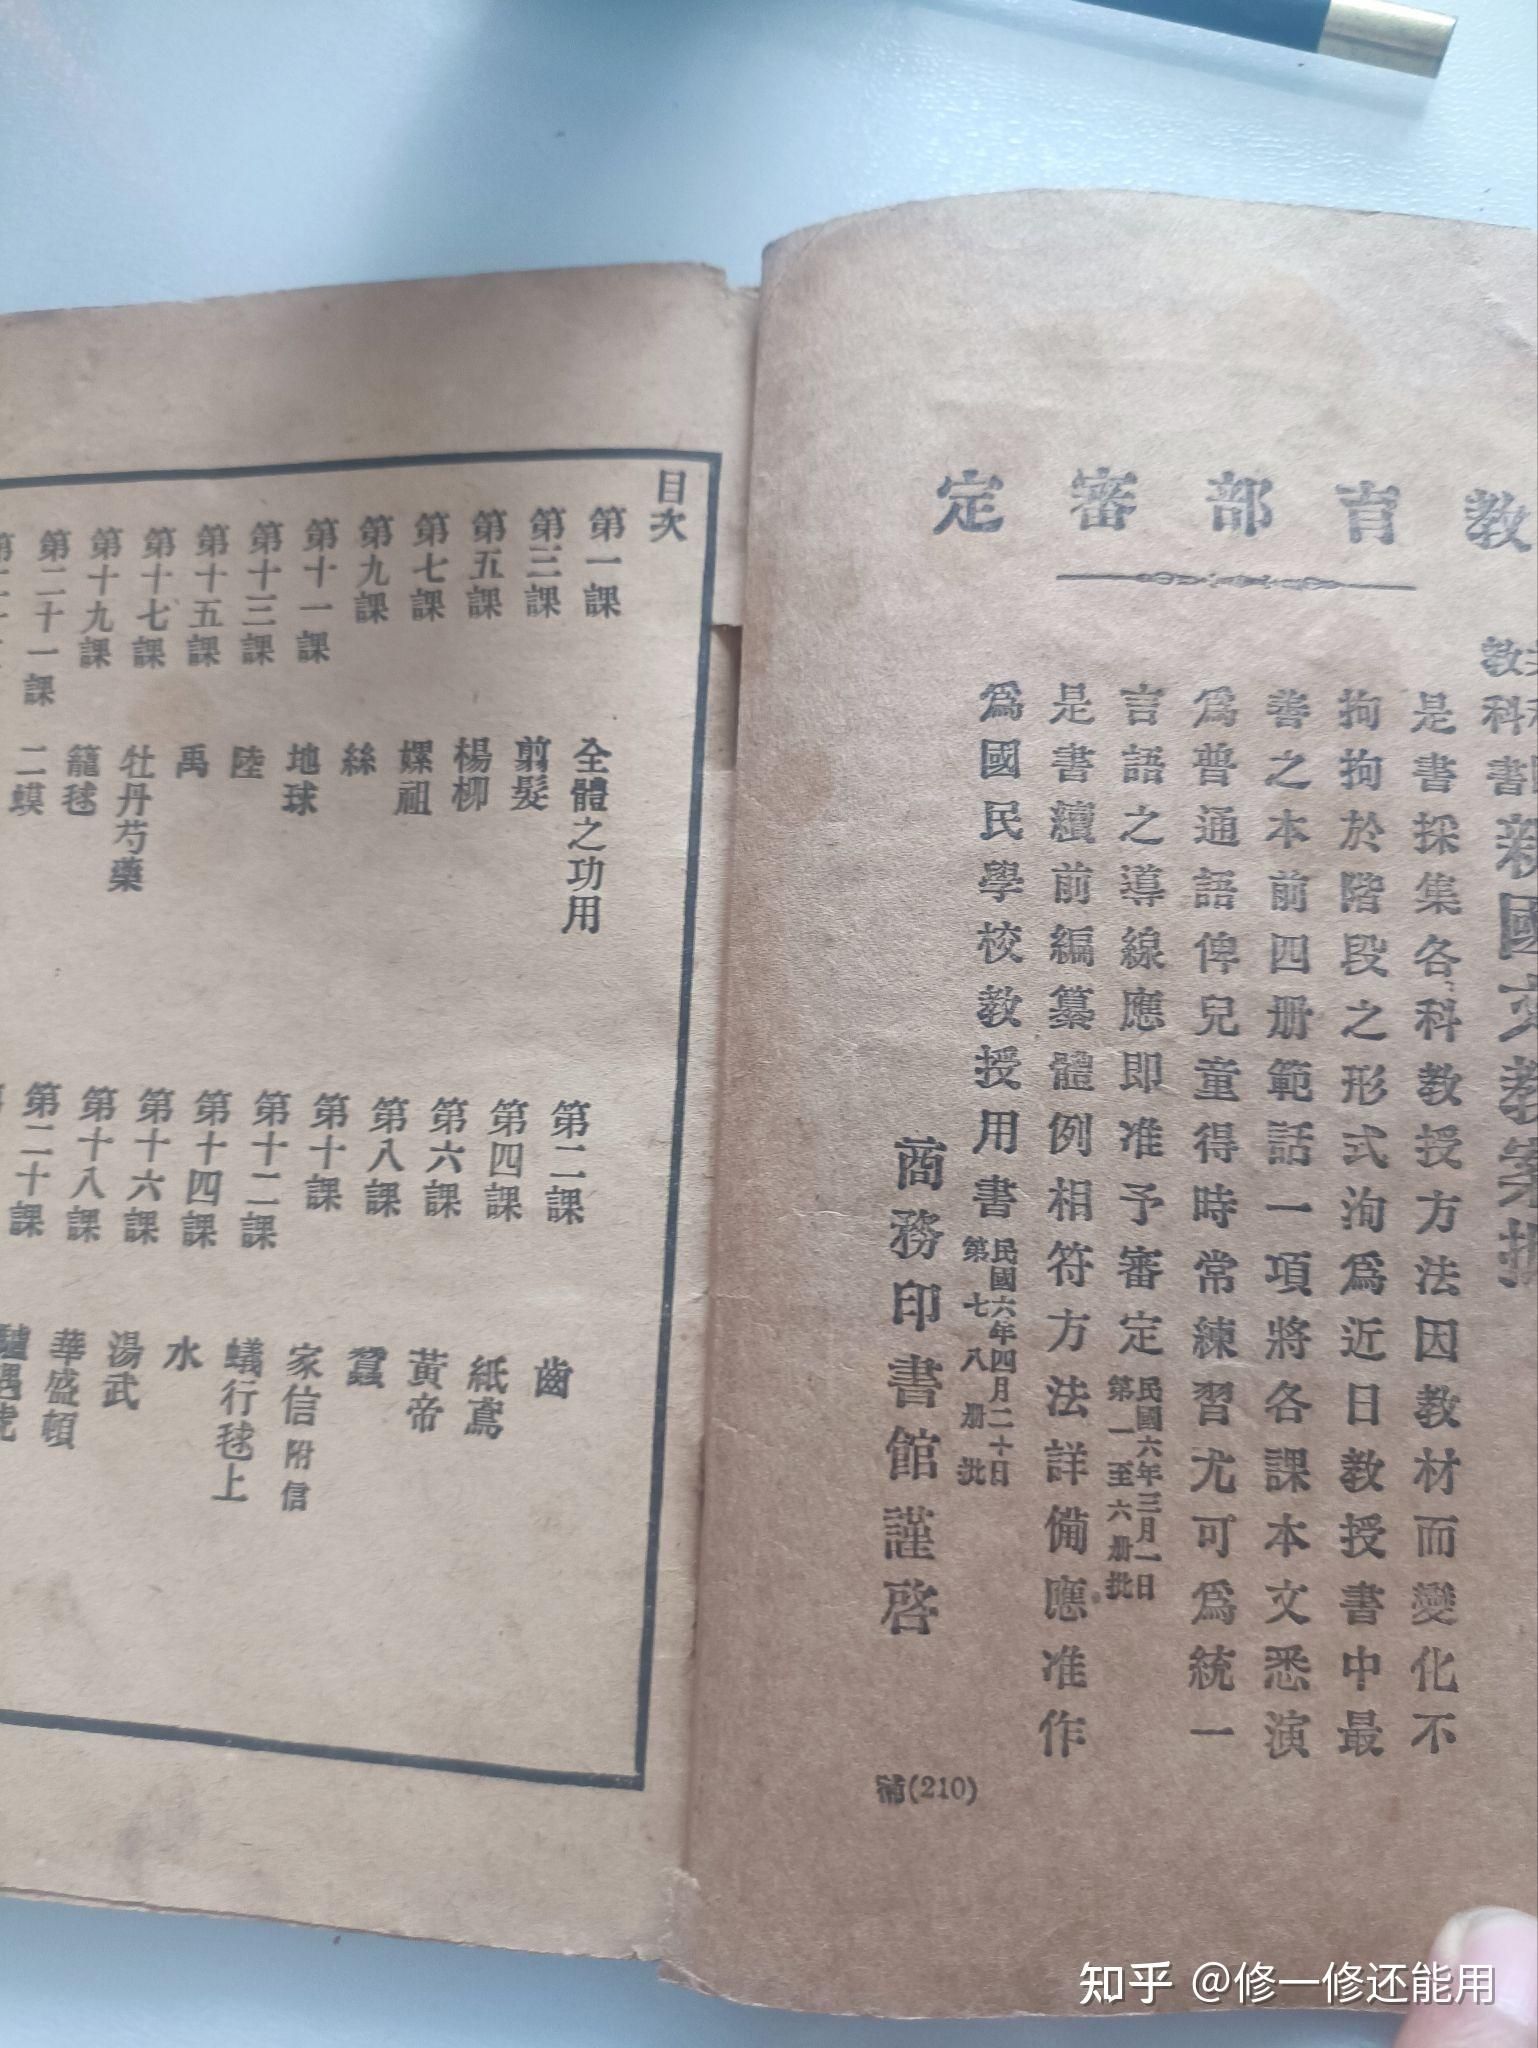 教育部審定
教科書新國文教案批
是書採集各科教授方法因教材而變化不
拘拘於階段之形式洵爲近日教授書中最
善之本前四册範話一項將各課本文悉演
爲普通語俾兒童得時常練習尤可爲統一
言語之導線應即准予審定民國六年三月一日第一至六册批
是書續前編纂體例相符方法詳備應准作
爲國民學校教授用書民國六年四月二十日第七八册批
商務印書館謹啓
(210)
目次
第一課 全體之功用
第二課 齒
第三課 剪髮
第四課 紙鳶
第五課 楊柳
第六課 黃帝
第七課 嫘祖
第八課 蠶
第九課 絲
第十課 家信 附信
第十一課 地球
第十二課 蟻行毬上
第十三課 陸
第十四課 水
第十五課 禹
第十六課 湯武
第十七課 牡丹芍藥
第十八課 華盛頓
第十九課 籠毬
第二十課
第二十一課 二蟆
知乎 @修一修还能用